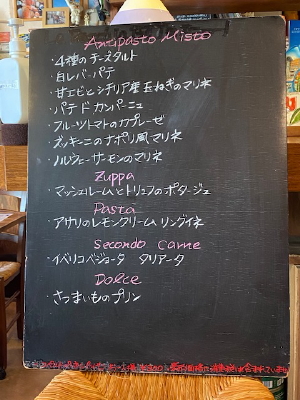 Antipasto Misto
・4種のチーズタルト
・白レバーパテ
・甘エビとシチリア産玉ねぎのマリネ
・パテ ド カンパーニュ
・フルーツトマトのカプレーゼ
・ズッキーニのナポリ風マリネ
・ノルウェーサーモンのマリネ
Zuppa
・マッシュルームとトリュフのポタージュ
Pasta
・アサリのレモンクリームリングイネ
Secondo Carne
・イベリコベジョータ タリアータ
Dolce
・さつまいものプリン